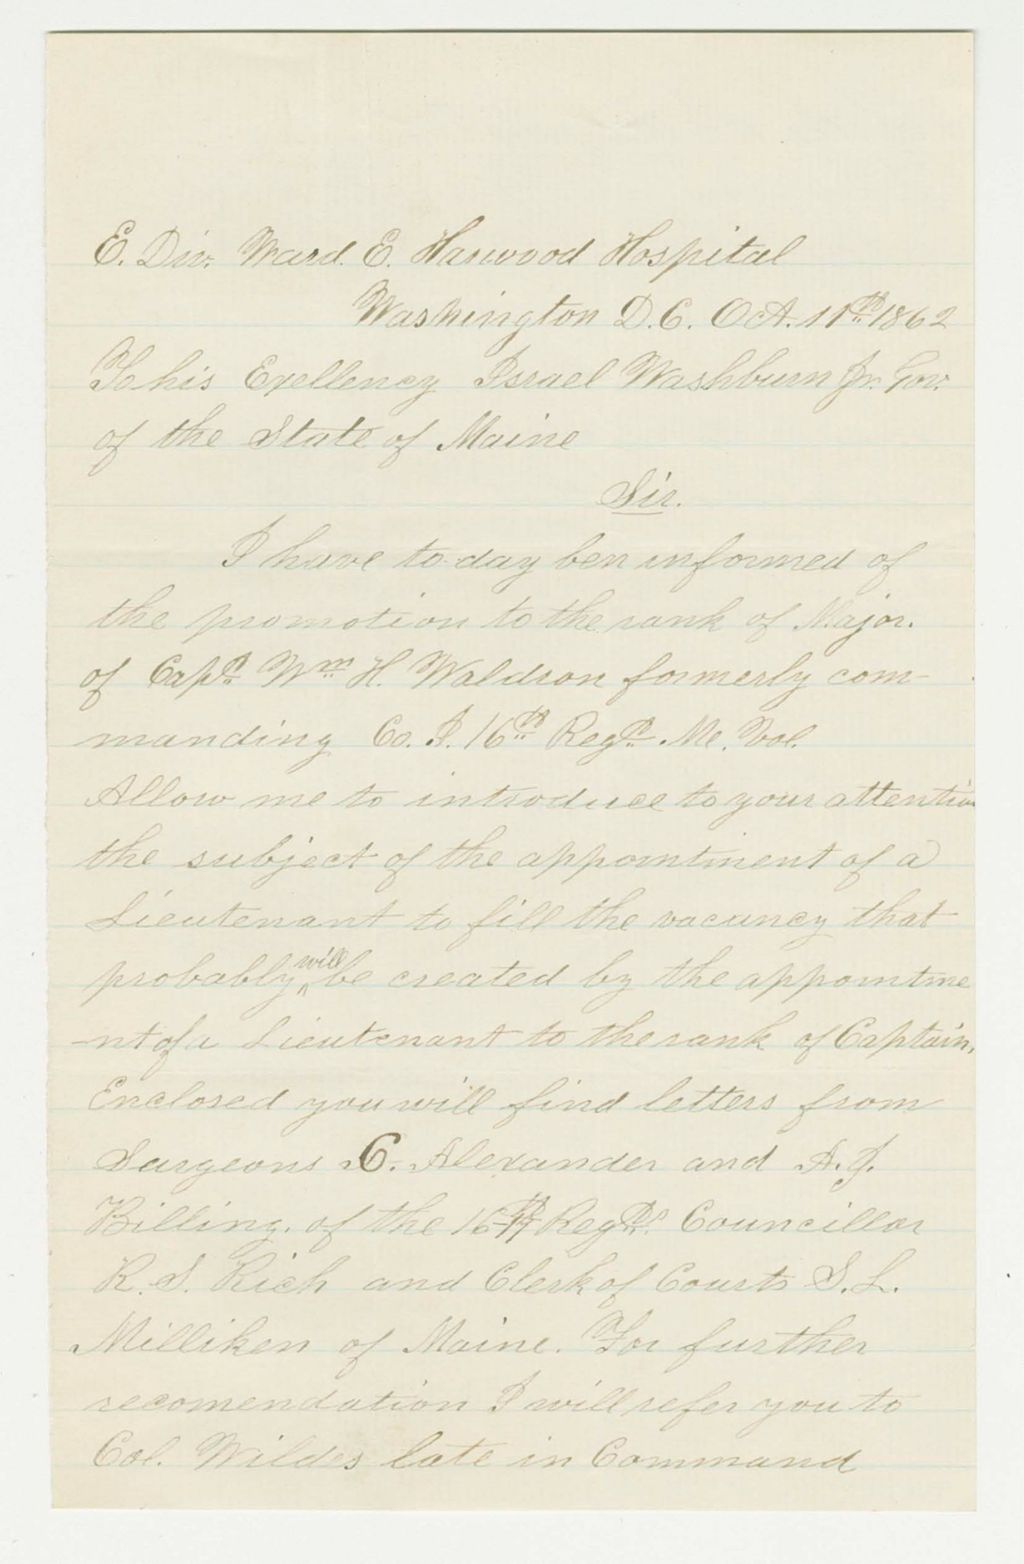 E. Div. Ward. E. Harwood Hospital
Washington D.C. Oct. 11th 1862
To his Exellency Israel Washburn Jr. Gov.
of the State of Maine
Sir.
I have to-day ben informed of
the promotion to the rank of Major.
of Capt. Wm H. Waldron formerly com-
manding Co. I. 16th Regt. Me. Vol.
Allow me to introduce to your attention
the subject of the appointment of a
Lieutenant to fill the vacancy that
probably will be created by the appointme
-nt of a Lieutenant to the rank of Captain.
Enclosed you will find letters from
Surgeons C. Alexander and A. J.
Billing. of the 16th Regt. Councillor
R. S. Rich and Clerk of Courts S. L.
Milliken of Maine. For further
recomendation I will refer you to
Col. Wildes late in Command